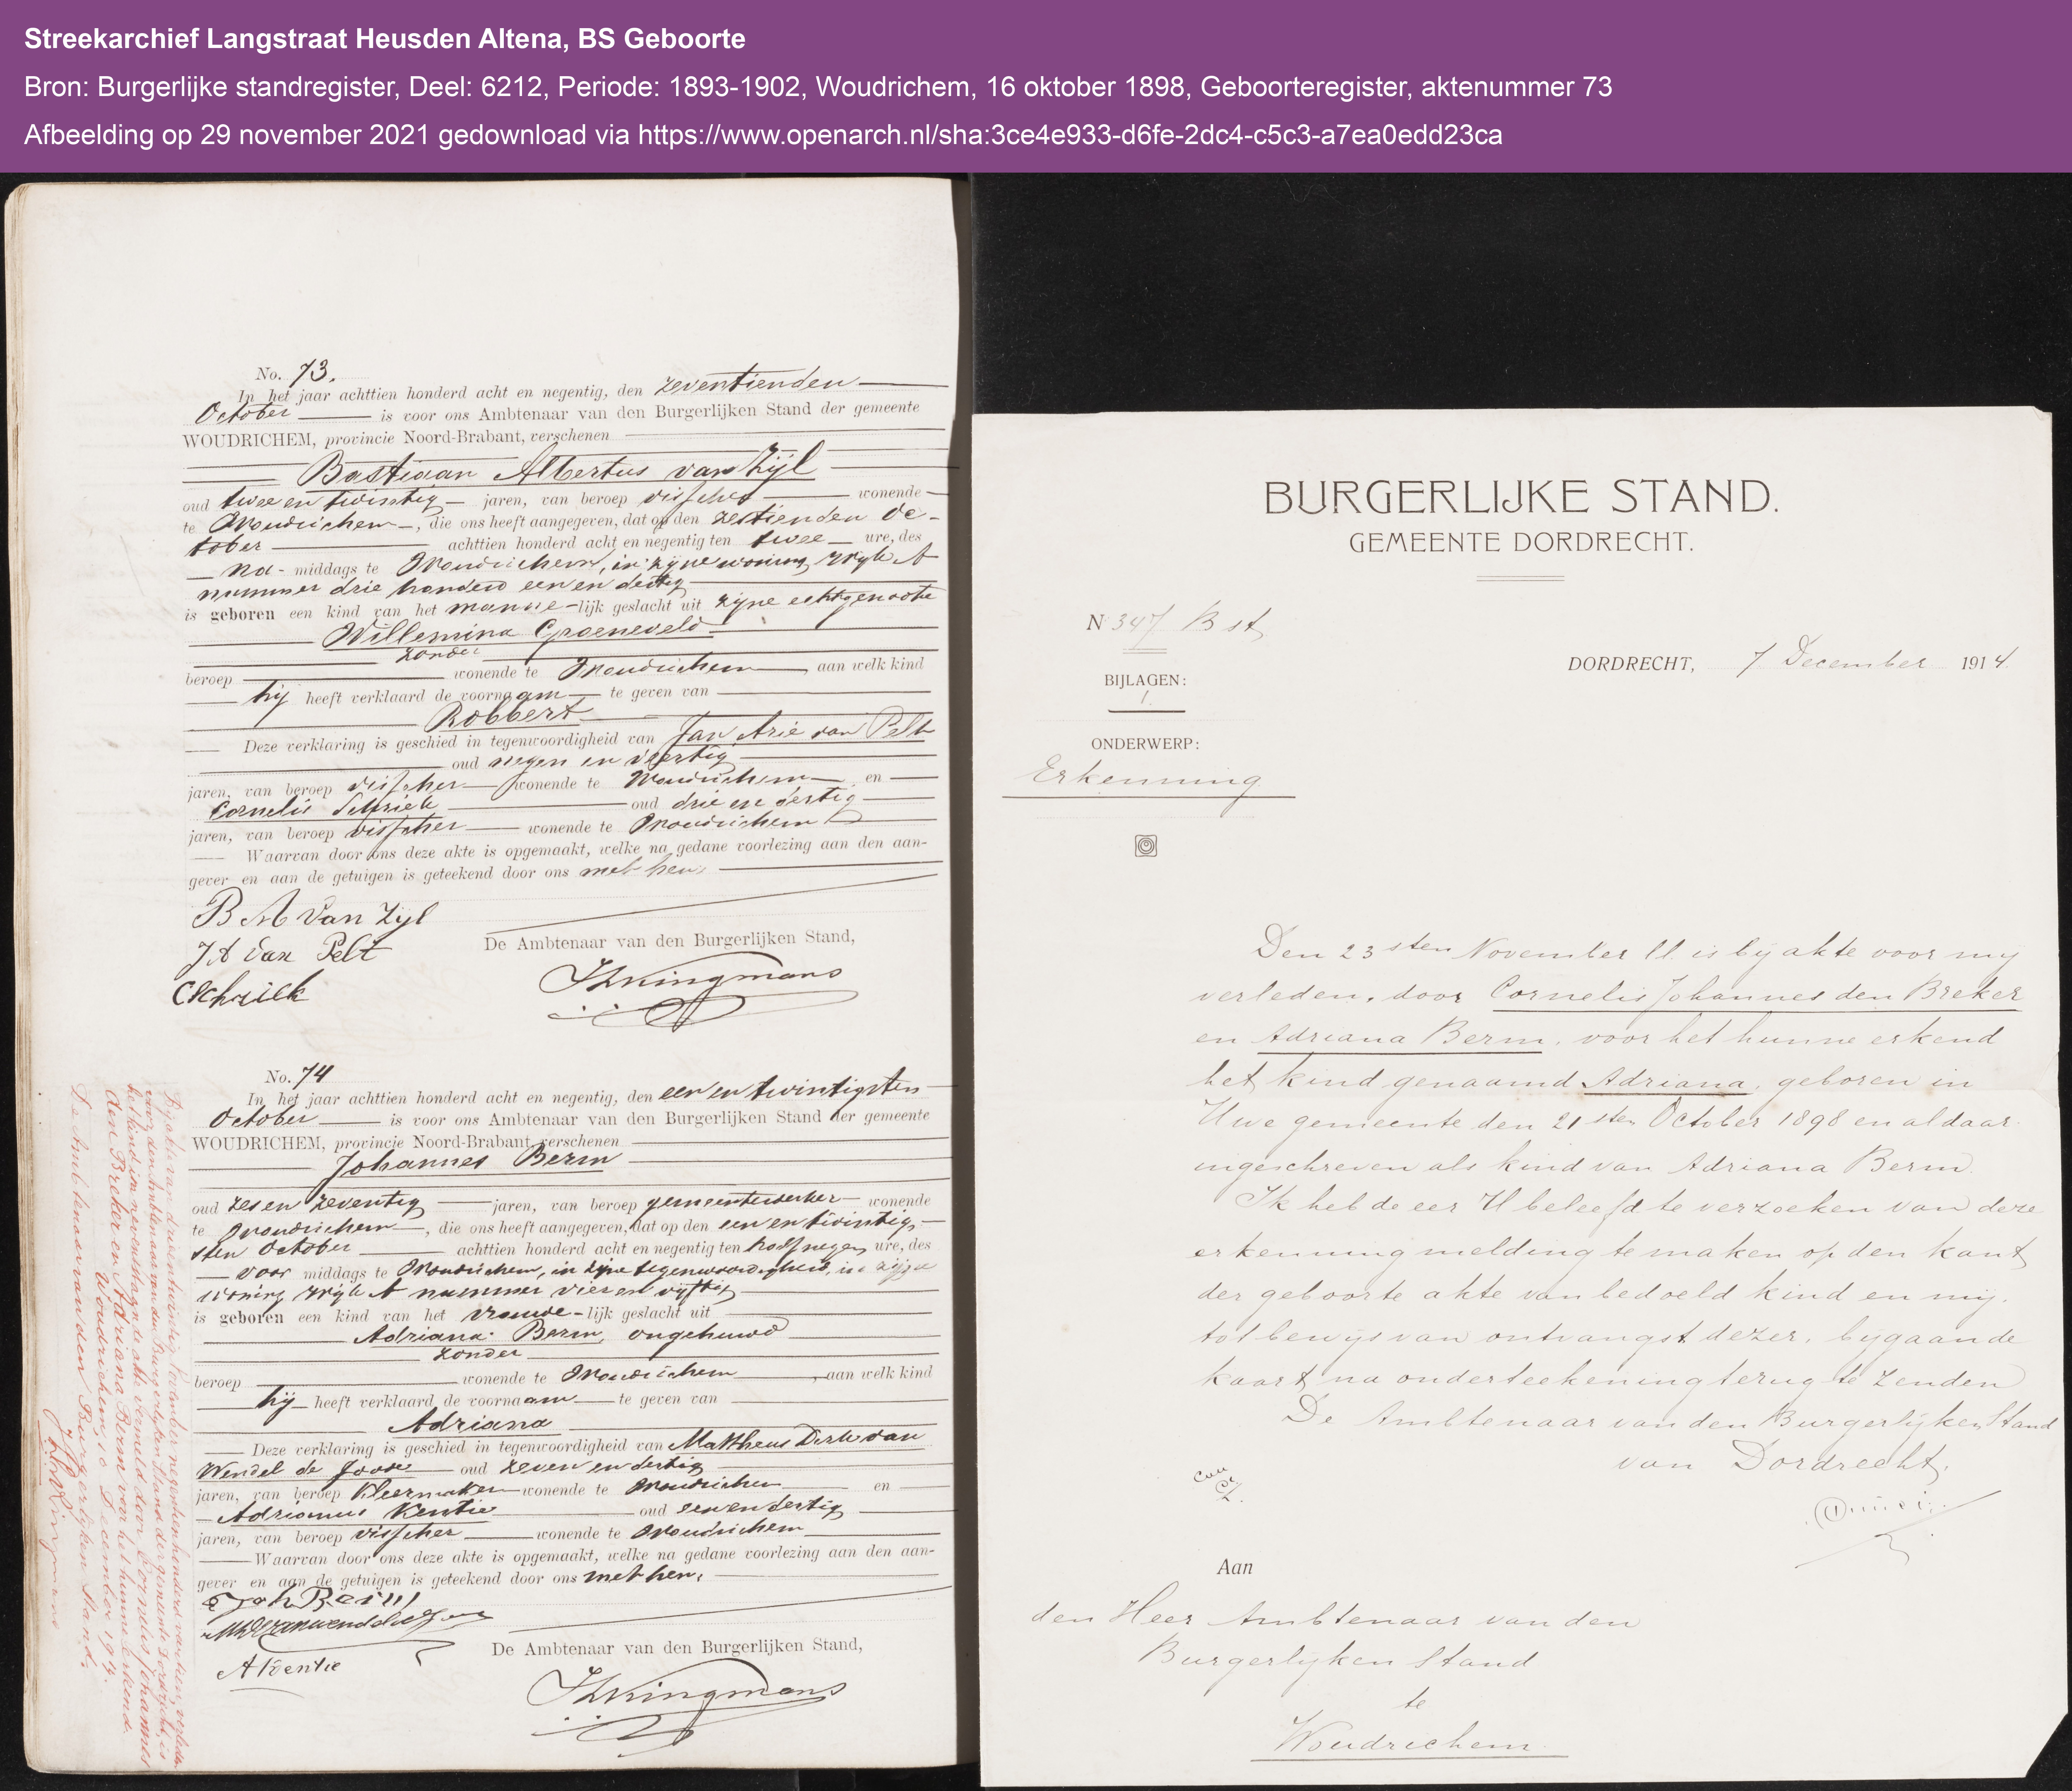 Streekarchief Langstraat Heusden Altena, BS Geboorte
Bron: Burgerlijke standregister, Deel: 6212, Periode: 1893-1902, Woudrichem, 16 oktober 1898, Geboorteregister, aktenummer 73
Afbeelding op 29 november 2021 gedownload via https://www.openarch.nl/sha:3ce4e933-d6fe-2dc4-c5c3-a7ea0edd23ca
No. 73.
In het jaar achttien honderd acht en negentig, den zeventienden
October is voor ons Ambtenaar van den Burgerlijken Stand der gemeente
WOUDRICHEM, provincie Noord-Brabant, verschenen
Bastiaan Albertus van Zijl
oud twee en twintig jaren, van beroep visscher wonende
te Woudrichem, die ons heeft aangegeven, dat op den zestienden Oc-
tober achttien honderd acht en negentig ten twee ure, des
na-middags te Woudrichem, in zijne woning wijk A
nummer drie honderd een en dertig
is geboren een kind van het manne-lijk geslacht uit zijne echtgenoote
Willemina Groeneveld
zonder
beroep wonende te Woudrichem aan welk kind
hij heeft verklaard de voornaam te geven van
Robbert
Deze verklaring is geschied in tegenwoordigheid van Jan Arie van Pelt
oud negen en veertig
jaren, van beroep visscher wonende te Woudrichem en
Cornelis Schriek oud drie en dertig
jaren, van beroep visscher wonende te Woudrichem
Waarvan door ons deze akte is opgemaakt, welke na gedane voorlezing aan den aan-
gever en aan de getuigen is geteekend door ons met hen.
B A Van Zijl
J A van Pelt
C Schriek
De Ambtenaar van den Burgerlijken Stand,
Kingmans
No. 74
In het jaar achttien honderd acht en negentig, den een en twintigsten
October is voor ons Ambtenaar van den Burgerlijken Stand der gemeente
WOUDRICHEM, provincie Noord-Brabant, verschenen
Johannes Berm
oud zes en zeventig jaren, van beroep gemeentewerker wonende
te Woudrichem, die ons heeft aangegeven, dat op den een en twintig-
sten October achttien honderd acht en negentig ten half negen ure, des
voor middags te Woudrichem, in zijne tegenwoordigheid, in zijne
woning wijk A nummer vier en vijftig
is geboren een kind van het vrouwe-lijk geslacht uit
Adriana Berm, ongehuwd
zonder
beroep wonende te Woudrichem, aan welk kind
hij heeft verklaard de voornaam te geven van
Adriana
Deze verklaring is geschied in tegenwoordigheid van Mattheus Dirk van
Wendel de Joode oud zeven en dertig
jaren, van beroep kleermaker wonende te Woudrichem en
Adrianus Kentie oud een en dertig
jaren, van beroep visscher wonende te Woudrichem
Waarvan door ons deze akte is opgemaakt, welke na gedane voorlezing aan den aan-
gever en aan de getuigen is geteekend door ons met hen.
Joh Berm
A Kentie
De Ambtenaar van den Burgerlijken Stand,
Kingmans
Bij akte van drie en twintig November negentienhonderd veertien, verleden
voor den Ambtenaar van den Burgerlijken Stand der gemeente Dordrecht, is
het kind in nevenstaande akte vermeld door Cornelis Johannes
den Breker en Adriana Berm voor het hunne erkend.
Woudrichem, 10 December 1914.
De Ambtenaar van den Burgerlijken Stand,
Kingmans
BURGERLIJKE STAND.
GEMEENTE DORDRECHT.
N 347 B st
DORDRECHT, 7 December 1914
BIJLAGEN:
1.
ONDERWERP:
Erkenning
Den 23sten November ll is bij akte voor mij
verleden, door Cornelis Johannes den Breker
en Adriana Berm, voor het hunne erkend
het kind genaamd Adriana, geboren in
Uwe gemeente den 21sten October 1898 en aldaar
ingeschreven als kind van Adriana Berm.
Ik heb de eer U beleefd te verzoeken van deze
erkenning melding te maken op den kant
der geboorte akte van bedoeld kind en mij,
tot bewijs van ontvangst dezer, bijgaande
kaart na onderteekening terug te zenden
De Ambtenaar van den Burgerlijken Stand
van Dordrecht,
Aan
den Heer Ambtenaar van den
Burgerlijken Stand
te
Woudrichem